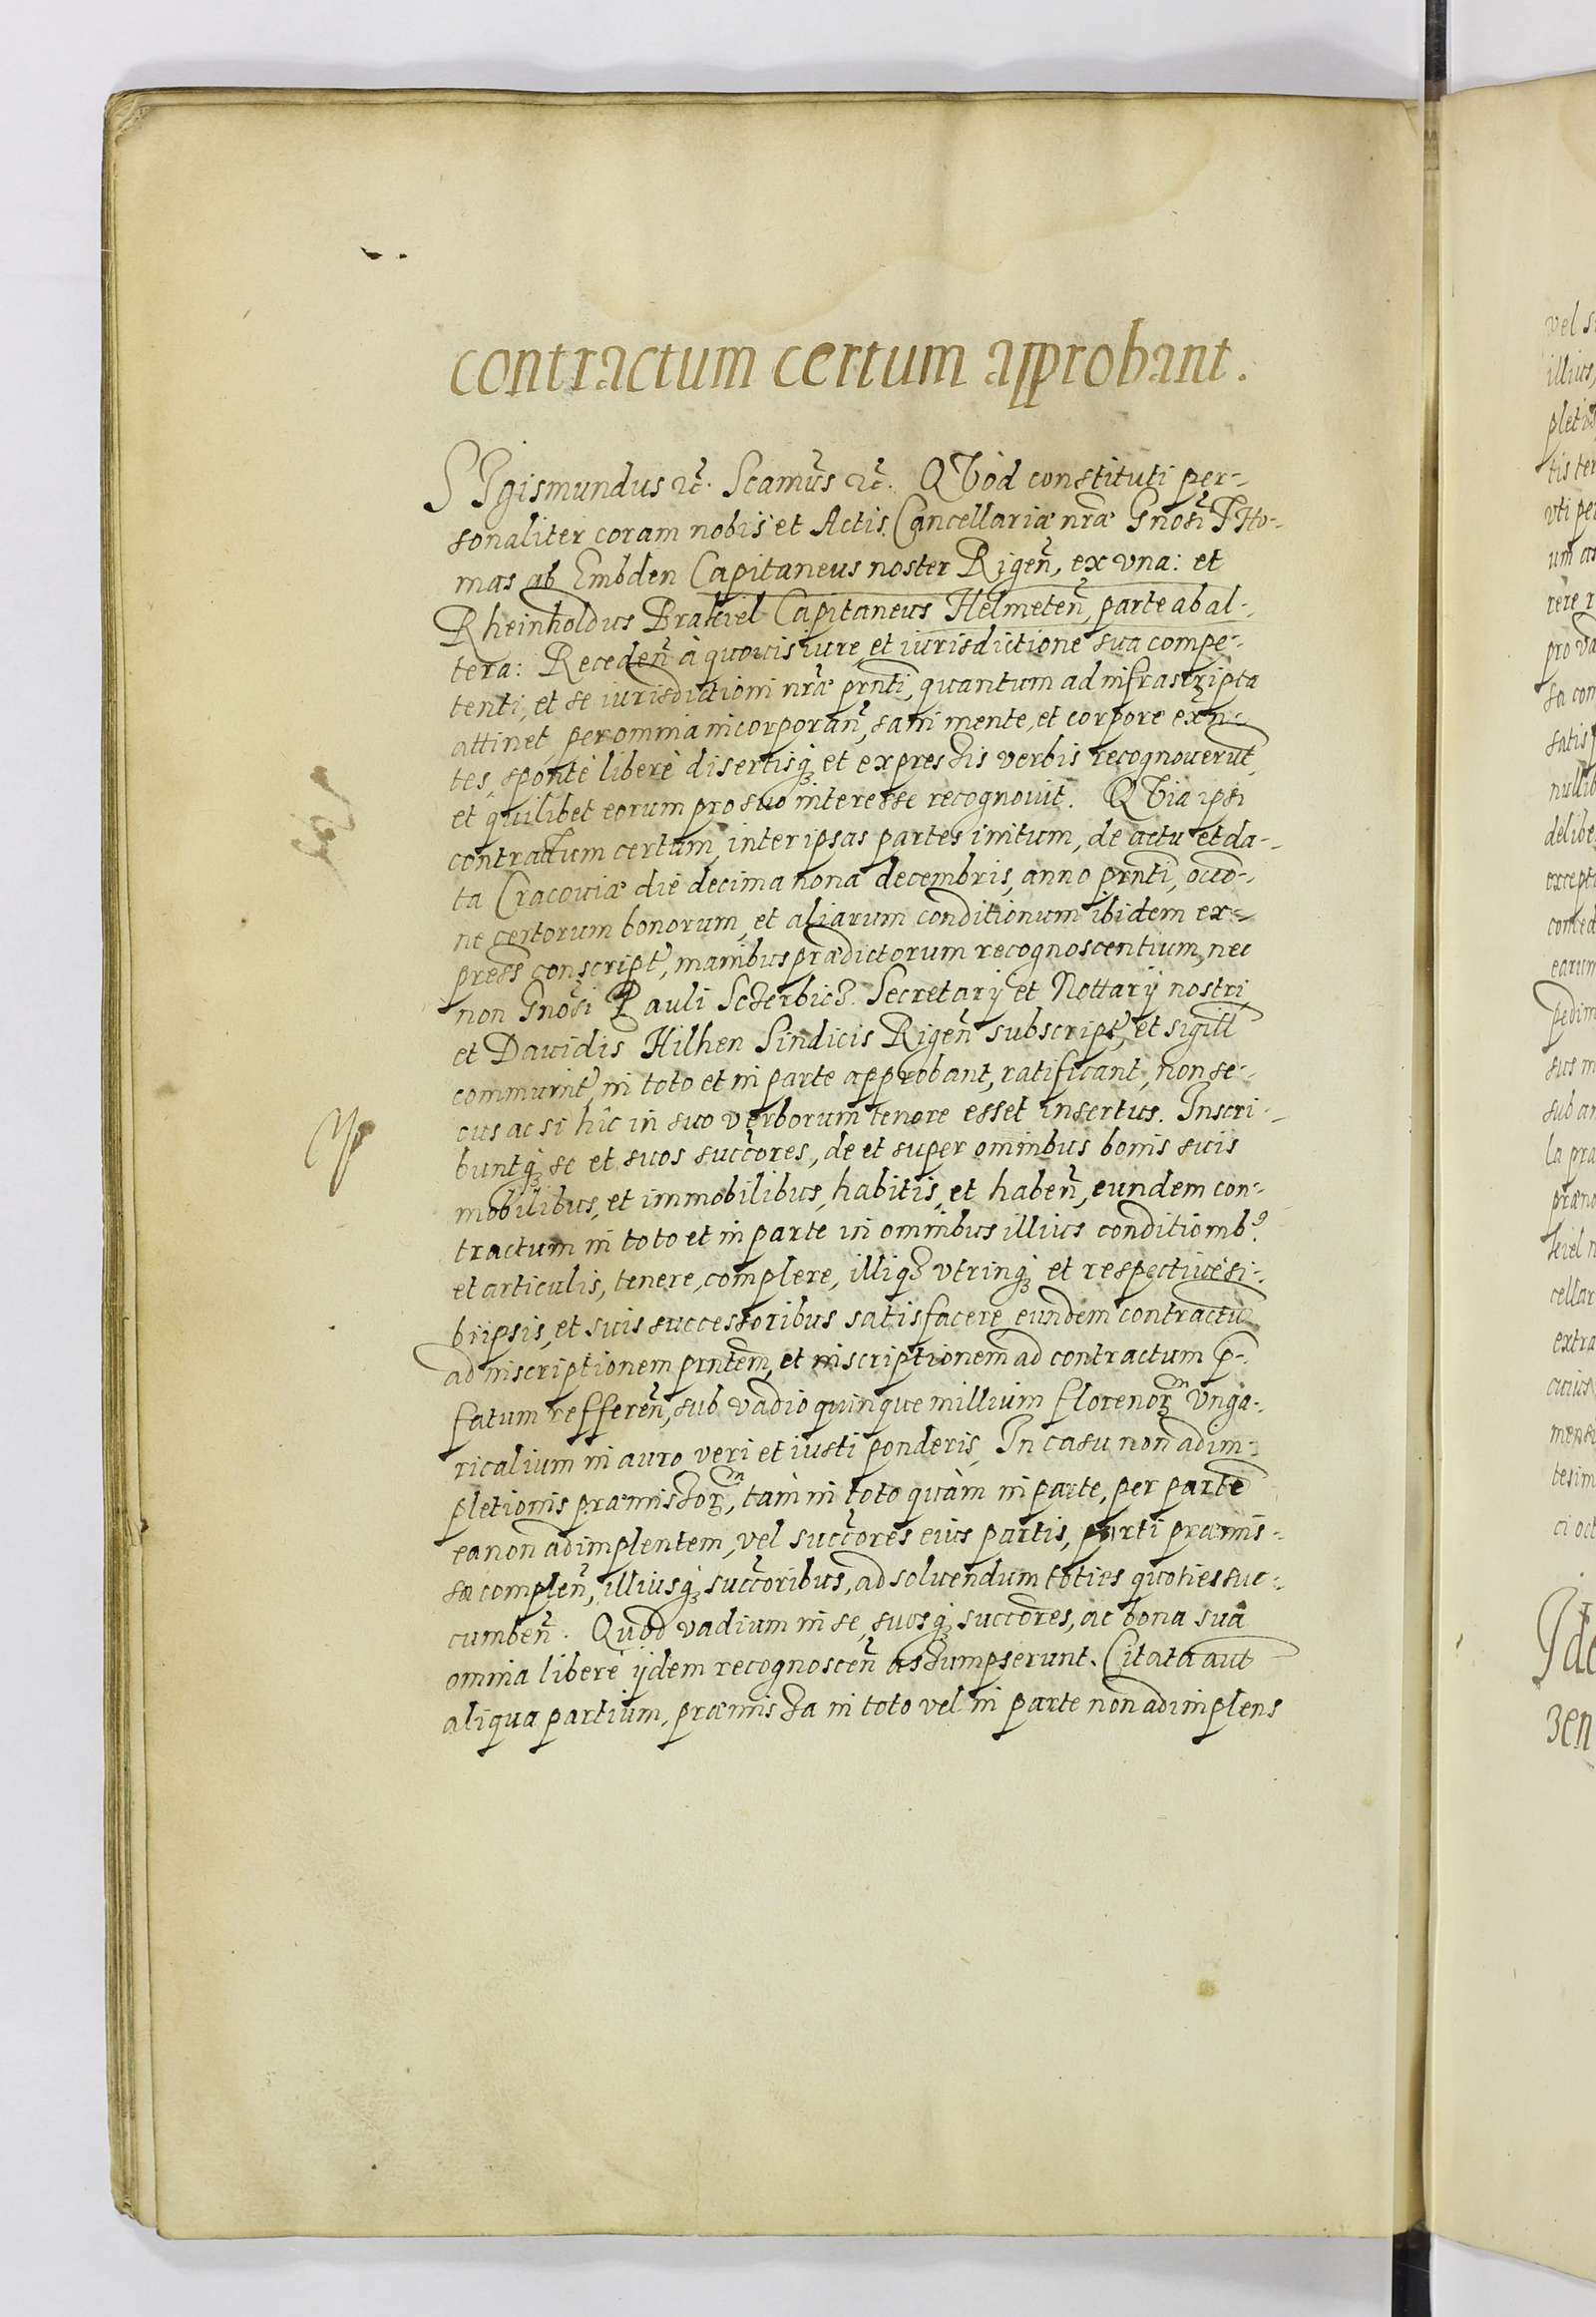 contractum certum approbant.
SIgismundus &c̃. Scamus̃ &c̃. QVod constituti per-
sonaliter coram nobis et Actis Cancellariæ nr̃æ Gnosi̾ THo-
mas ab Embden Capitaneus noster Rigeñ, ex vna: et
Rheinholdus Brakiel Capitaneus Helmeteñ, parte ab al-
tera: Recedeñ à quouis iure et iurisdictione sua compe-
tenti, et se iurisdictioni nr̃æ prñti, quantum ad infrascripta
attinet per omnia incorporañ, sani mente, et corpore exñ-
tes, sponte libere disertisq́ꝫ et expressis verbis recognouerũt,
et quilibet eorum pro suo interesse recognouit. QVia ipsi
contractum certum, inter ipsas partes initum, de actu et da-
ta Cracouiæ die decima nona decembris, anno prñti, occõ-
ne certorum bonorum, et aliarum conditionum ibidem ex-
press conscript̃, manibus prædictorum recognoscentium, nec
non Gnosi̾ Pauli Sczerbicz. Secretarij et Nottarij nostri,
et Dauidis Hilhen Sindicis Rigeñ subscript̃, et sigill
communit̃, in toto et in parte approbant, ratificant, non se-
cus ac si hîc in suo verborum tenore esset insertus. Inscri-
buntq́ꝫ se et suos succ̃ores, de et super omnibus bonis suis
mobilibus, et immobilibus, habitis, et habeñ, eundem con-
tractum in toto et in parte in omnibus illius conditionibꝰ
et articulis, tenere, complere, illiqꝫ vtrinq́ꝫ et respectiue si-
bi ipsis, et suis successoribus satisfacere, eundem contractũ
ad inscriptionem prñtem, et inscriptionem ad contractum p̃-
fatum refferen̾, sub vadio quinque millium florenorꝫᵐ Vnga-
ricalium in auro veri et iusti ponderis, In casu non adim-
pletionis præmissorꝫᵐ, tam in toto quàm in parte, per partẽ
ea non adimplentem, vel succ̃ores eius partis, parti præmis-
sa compleñ, illiusq́ꝫ succ̃oribus, ad soluendum toties quoties suc-
cumbeñ. Quod vadium in se, suosq́ꝫ succ̃ores, ac bona sua
omnia libere ijdem recognosceñ assumpserunt. Citata aut̃
aliqua partium, præmissa in toto vel in parte non adimplens
vel s
illius,
pletio
tis ter
vti per
um as
pro va
sa con
satisf
nullib
delibe
excepti
conced
earum
pedim
suis m
sub an
la pra
præno
kiel n
cellar
extra
cuius
mense
tesim
ci oct
Ide
zen